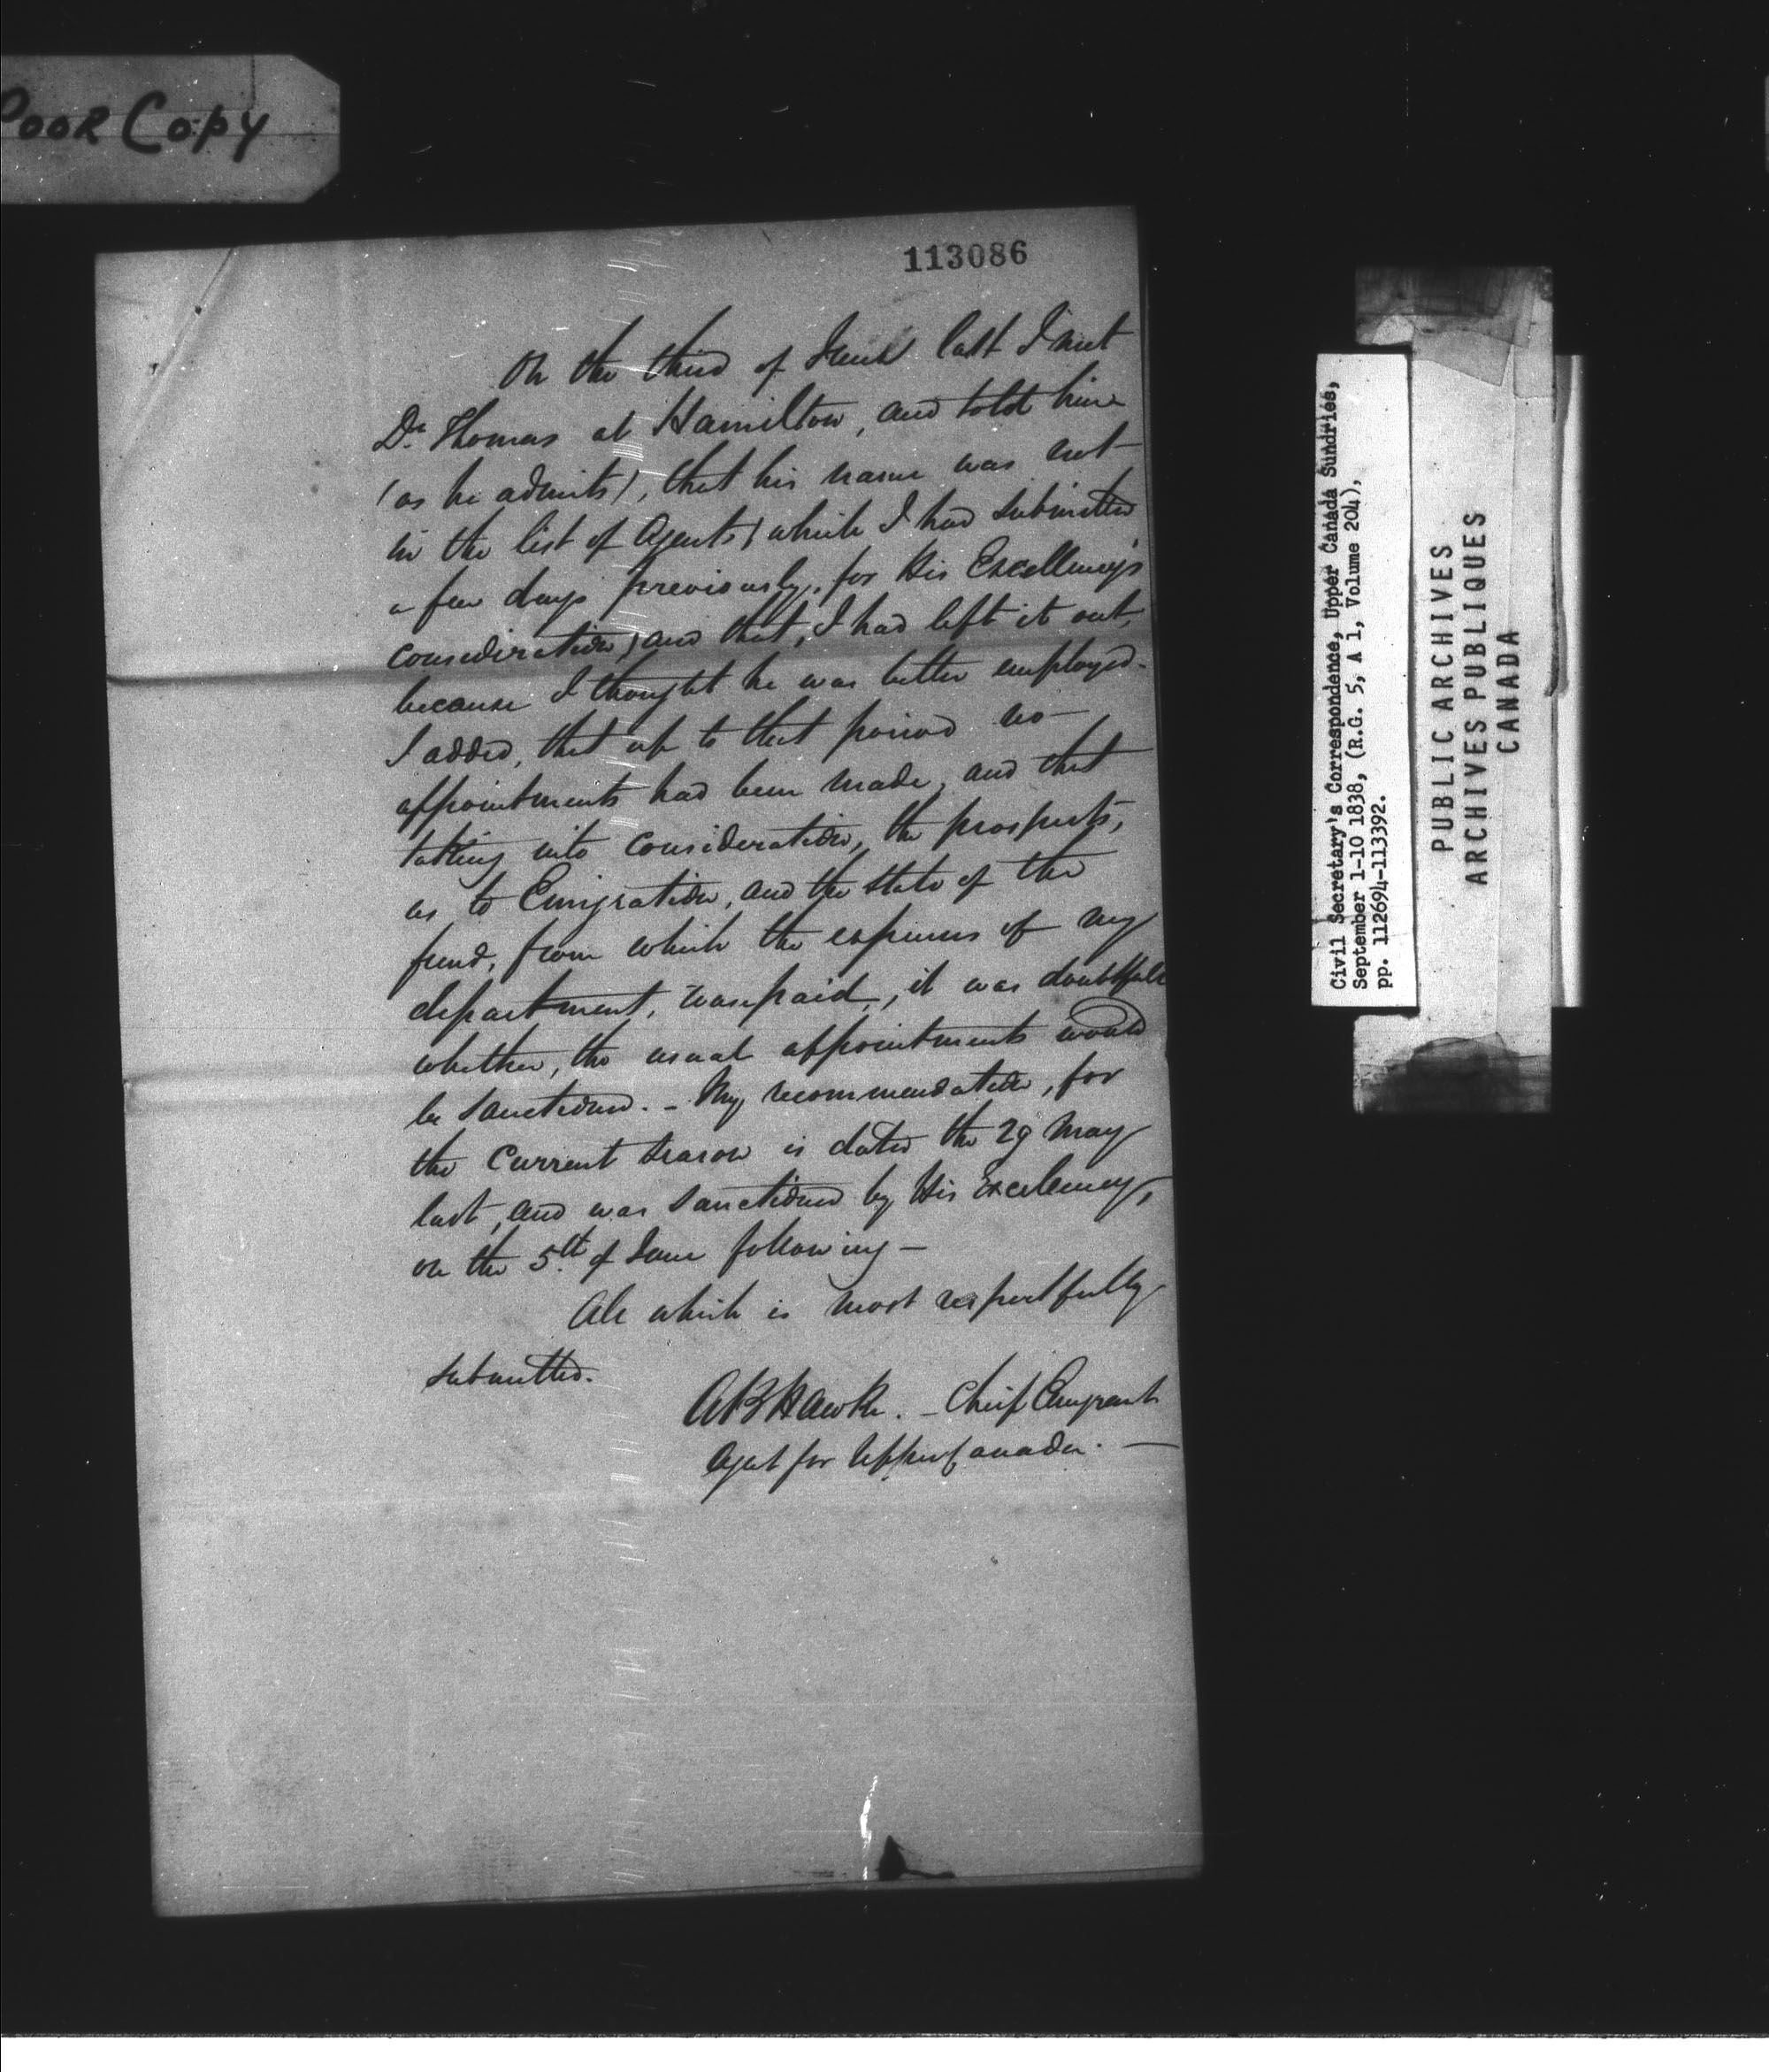 Poor Copy
113086
On the third of June last I met
Dr. Thomas at Hamilton, and told him
(as he admits), that his name was not
in the list of Agents, which I had submitted
a few days previously, for His Excellency's
consideration, and that, I had left it out,
because I thought he was better employed -
I added, that up to that period no -
appointments had been made, and that
taking into consideration, the prospects,
as to Emigration, and the state of the
fund, from which the expenses of my
department, was paid, it was doubtfull
whether, the usual appointments would
be sanctioned. - My recommendation, for
the Current Season is dated the 29 May
last, and was sanctioned by His Excellency,
on the 5th of June following -
All which is most respectfully
submitted.
A B Hawke. - Chief Emigrant
Agent for Upper Canada. -
Civil Secretary's Correspondence, Upper Canada Sundries,
September 1-10 1838, (R.G. 5, A 1, Volume 204),
pp. 112694-113392.
PUBLIC ARCHIVES
ARCHIVES PUBLIQUES
CANADA